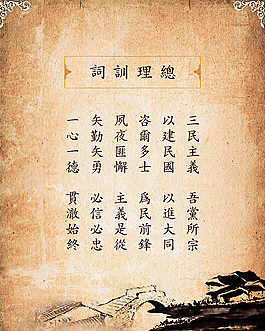 總理訓詞
三民主義 吾黨所宗
以建民國 以進大同
咨爾多士 爲民前鋒
夙夜匪懈 主義是從
矢勤矢勇 必信必忠
一心一德 貫澈始終